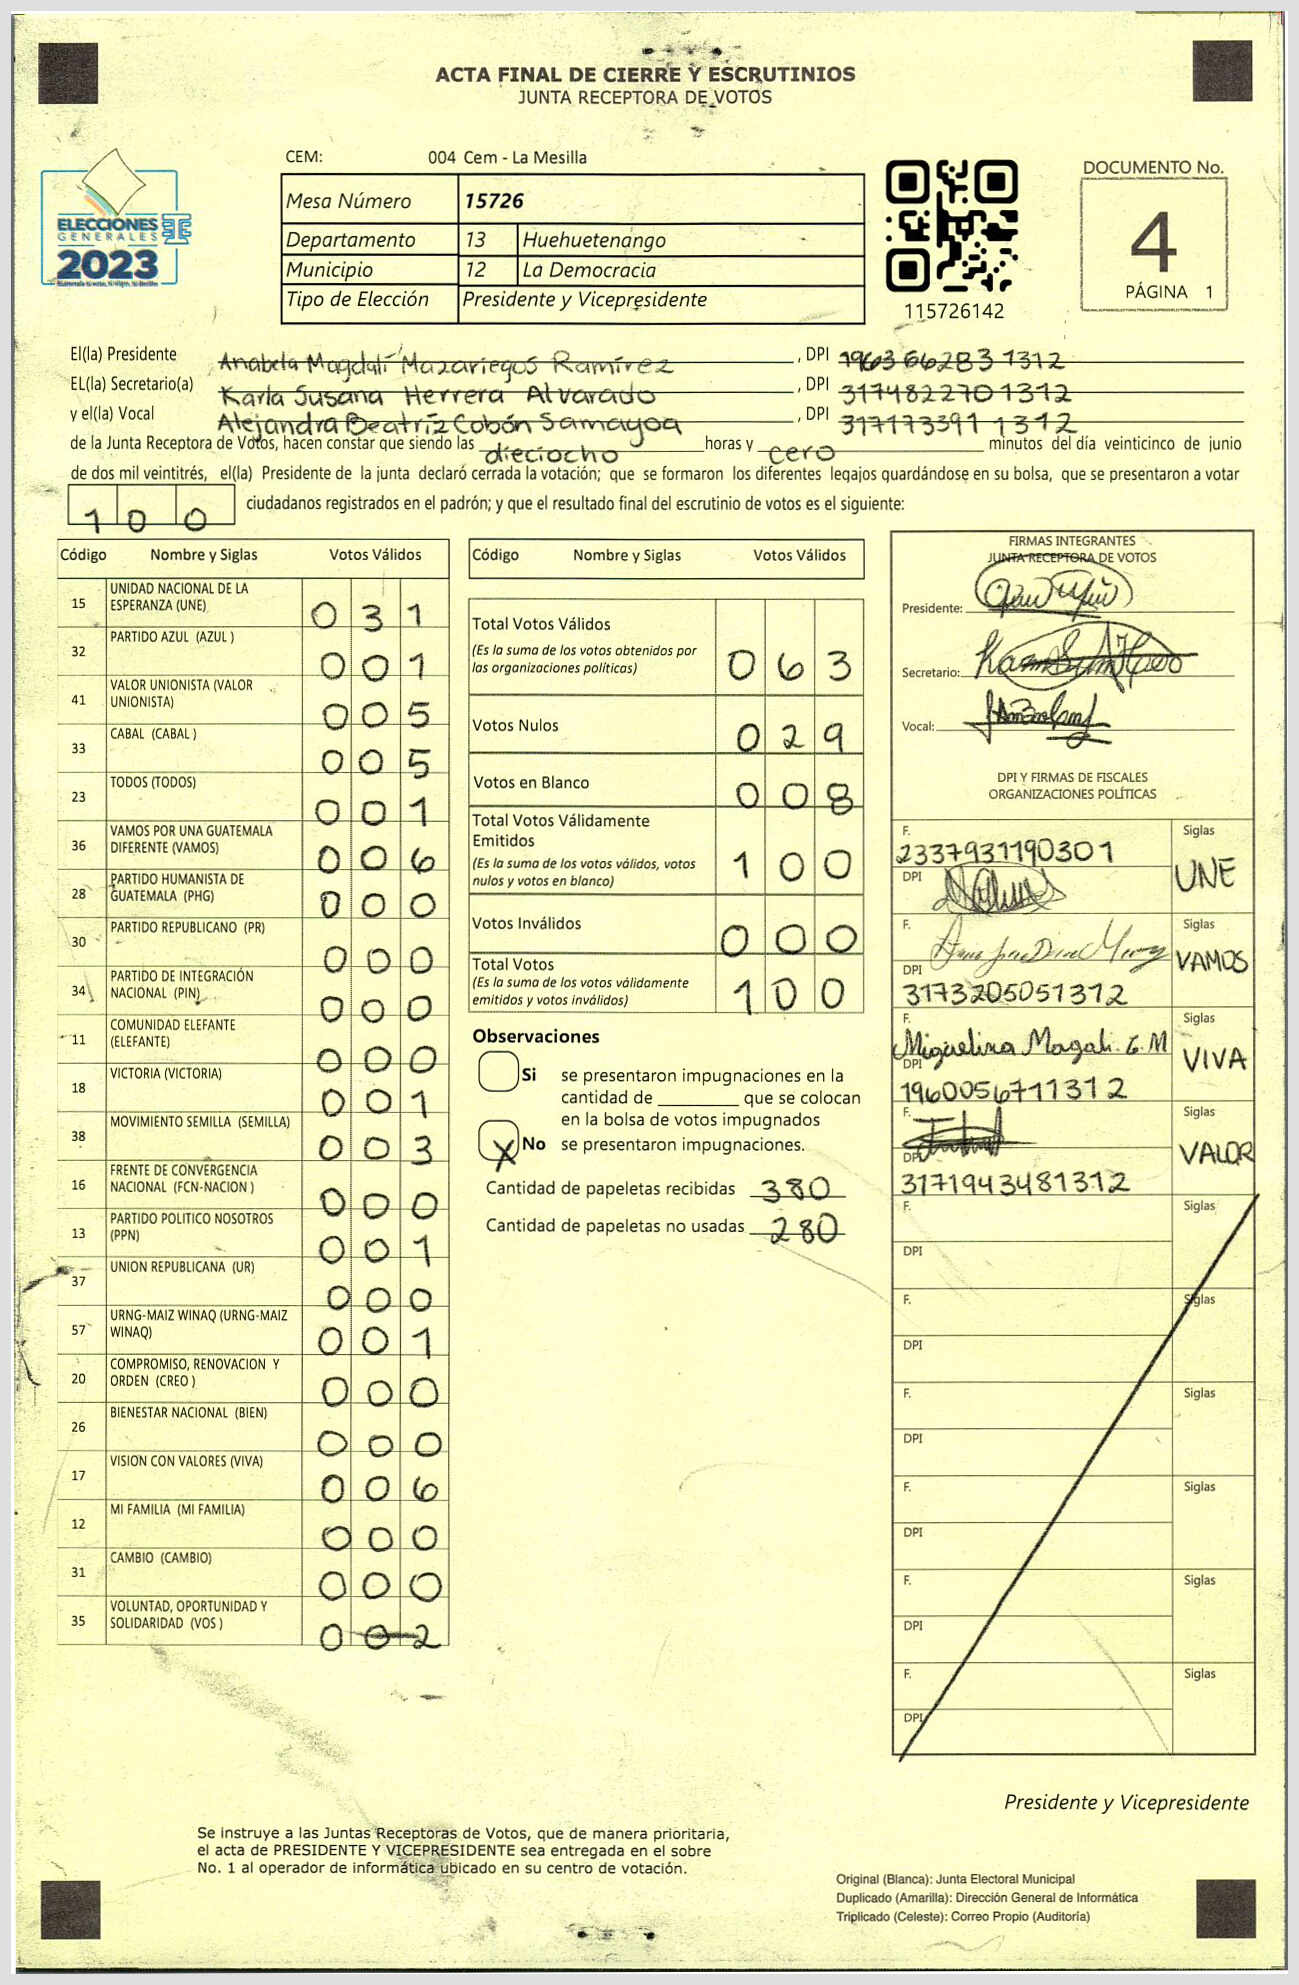 ACTA FINAL DE CIERRE Y ESCRUTINIOS
JUNTA RECEPTORA DE VOTOS
CEM: 004 Cem - La Mesilla
ELECCIONES
GENERALES
2023
Mesa Número 15726
Departamento 13 Huehuetenango
Municipio 12 La Democracia
Tipo de Elección Presidente y Vicepresidente
115726142
DOCUMENTO No.
4
PÁGINA 1
El(la) Presidente Anabela Magdalí Mazariegos Ramírez, DPI 1963662831312
EL(la) Secretario(a) Karla Susana Herrera Alvarado, DPI 3174822701312
y el(la) Vocal Alejandra Beatríz Cobón Samayoa, DPI 3171733911312
de la Junta Receptora de Votos, hacen constar que siendo las dieciocho horas y cero minutos del día veinticinco de junio
de dos mil veintitrés, el(la) Presidente de la junta declaró cerrada la votación; que se formaron los diferentes legajos guardándose en su bolsa, que se presentaron a votar
100 ciudadanos registrados en el padrón; y que el resultado final del escrutinio de votos es el siguiente:
Código Nombre y Siglas Votos Válidos
15 UNIDAD NACIONAL DE LA ESPERANZA (UNE) 031
32 PARTIDO AZUL (AZUL ) 001
41 VALOR UNIONISTA (VALOR UNIONISTA) 005
33 CABAL (CABAL ) 005
23 TODOS (TODOS) 001
36 VAMOS POR UNA GUATEMALA DIFERENTE (VAMOS) 006
28 PARTIDO HUMANISTA DE GUATEMALA (PHG) 000
30 PARTIDO REPUBLICANO (PR) 000
34 PARTIDO DE INTEGRACIÓN NACIONAL (PIN) 000
11 COMUNIDAD ELEFANTE (ELEFANTE) 000
18 VICTORIA (VICTORIA) 001
38 MOVIMIENTO SEMILLA (SEMILLA) 003
16 FRENTE DE CONVERGENCIA NACIONAL (FCN-NACION ) 000
13 PARTIDO POLITICO NOSOTROS (PPN) 001
37 UNION REPUBLICANA (UR) 000
57 URNG-MAIZ WINAQ (URNG-MAIZ WINAQ) 001
20 COMPROMISO, RENOVACION Y ORDEN (CREO ) 000
26 BIENESTAR NACIONAL (BIEN) 000
17 VISION CON VALORES (VIVA) 006
12 MI FAMILIA (MI FAMILIA) 000
31 CAMBIO (CAMBIO) 000
35 VOLUNTAD, OPORTUNIDAD Y SOLIDARIDAD (VOS ) 002
Código Nombre y Siglas Votos Válidos
Total Votos Válidos 063
(Es la suma de los votos obtenidos por
las organizaciones políticas)
Votos Nulos 029
Votos en Blanco 008
Total Votos Válidamente
Emitidos 100
(Es la suma de los votos válidos, votos
nulos y votos en blanco)
Votos Inválidos 000
Total Votos 100
(Es la suma de los votos válidamente
emitidos y votos inválidos)
Observaciones
Si se presentaron impugnaciones en la
cantidad de ________ que se colocan
en la bolsa de votos impugnados
X No se presentaron impugnaciones.
Cantidad de papeletas recibidas 380
Cantidad de papeletas no usadas 280
FIRMAS INTEGRANTES
JUNTA RECEPTORA DE VOTOS
Presidente:
Secretario:
Vocal:
DPI Y FIRMAS DE FISCALES
ORGANIZACIONES POLÍTICAS
F. 2337931190301 Siglas
DPI UNE
F. Siglas
DPI 3173205051312 VAMOS
F. Miguelina Magali. G.M Siglas
DPI 1960056711312 VIVA
F. Siglas
DPI 3171943481312 VALOR
F. Siglas
DPI
F. Siglas
DPI
F. Siglas
DPI
F. Siglas
DPI
F. Siglas
DPI
F. Siglas
DPI
Presidente y Vicepresidente
Se instruye a las Juntas Receptoras de Votos, que de manera prioritaria,
el acta de PRESIDENTE Y VICEPRESIDENTE sea entregada en el sobre
No. 1 al operador de informática ubicado en su centro de votación.
Original (Blanca): Junta Electoral Municipal
Duplicado (Amarilla): Dirección General de Informática
Triplicado (Celeste): Correo Propio (Auditoría)